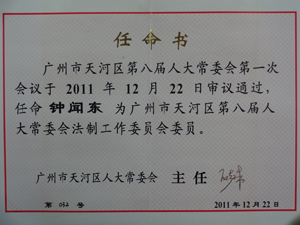 任命书
广州市天河区第八届人大常委会第一次
会议于 2011 年 12 月 22 日审议通过,
任命 钟闻东 为广州市天河区第八届人
大常委会法制工作委员会委员。
广州市天河区人大常委会 主任
第 号
2011 年 12 月 22 日